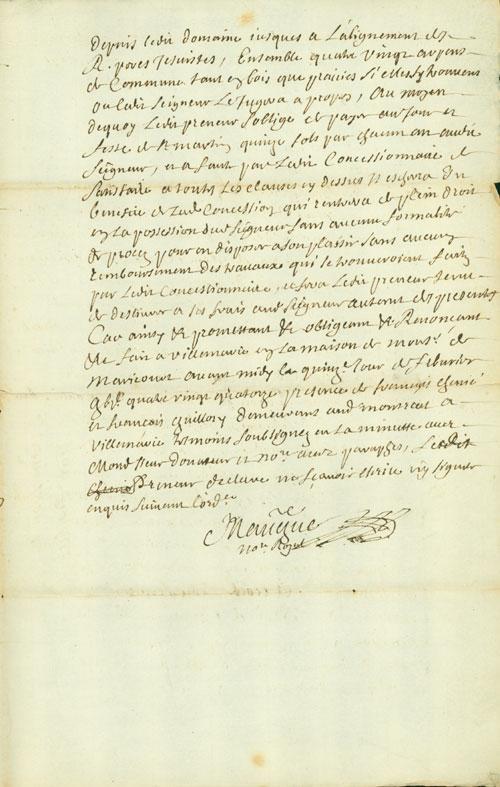 depuis ledit domaine jusques a l'alignement des
R. peres Jesuistes, Ensemble quatre vingt arpens
de Commune tant en bois que prairies si elles s'y trouvent
ou ledit Seigneur le jugera a propos, Au moyen
dequoy ledit preneur s'oblige de payer au jour et
feste de St martin quinze sols par chacun an audit
Seigneur, et a faute par ledit Concessionnaire de
satisfaire a toutes les clauses cy dessus Il eschera du
benefice de lad. Concession qui rentrera de plein droit
en la possession dud. Seigneur sans aucune formalité
de procez pour en disposer a son plaisir sans aucun
remboursement des travaux qui se trouveroient faits
par ledit Concessionnaire, et sera ledit preneur tenu
de deslivrer a ses frais aud. Seigneur autant des presentes
Car ainsy &c promettant &c obligeant &c Renonçant
&c fait a villemarie en la maison de mons.r de
maricourt avant midy le quinze.e Jour de feburier
quatre vingt quatorze presence de françois
et françois Guillory demeurans aud. montreal a
villemarie temoins soubsignez en la minutte avec
Mond. sieur donateur et no.re avec paraphes, Ledit
Preneur declare ne sçavoir escrire ny signer
enquis suivant l'ord.ce
Maugue
no.re Royal